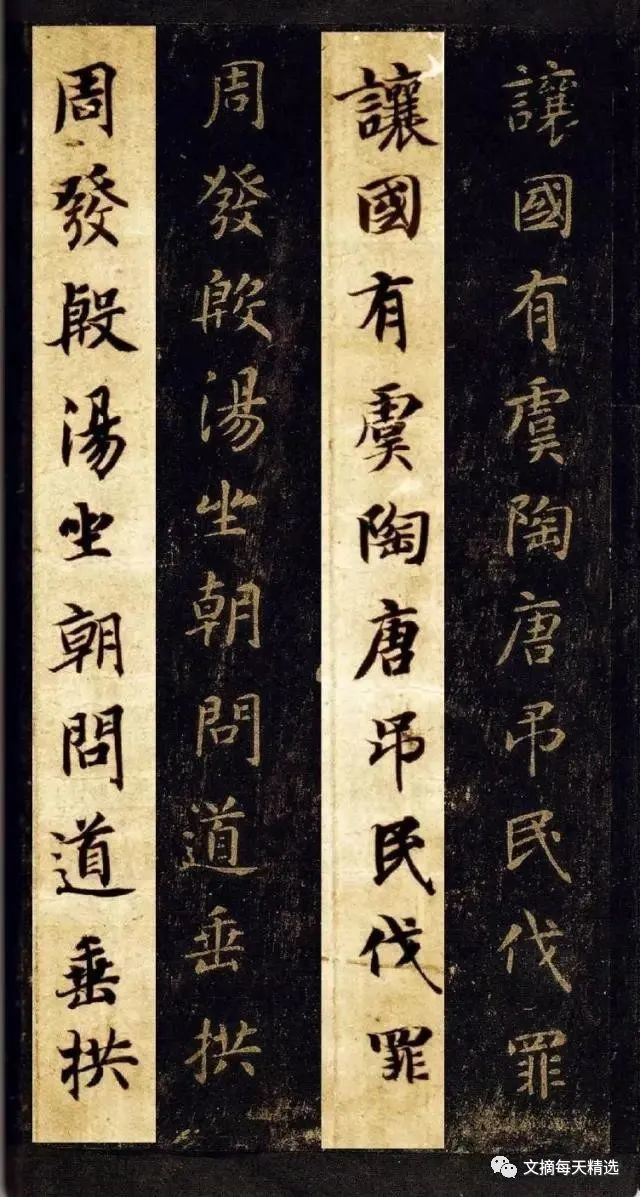 讓國有虞陶唐弔民伐罪
讓國有虞陶唐弔民伐罪
周發殷湯坐朝問道垂拱
周發殷湯坐朝問道垂拱
文摘每天精选